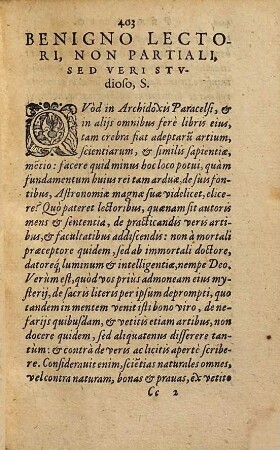 403
BENIGNO LECTO-
RI, NON PARTIALI,
SED VERI STV-
dioſo, S.
QVòd in Archidoxis Paracelſi, &
in alijs omnibus ferè libris eius,
tam crebra fiat adeptarũ artium,
ſcientiarum, & ſimilis ſapientiæ,
mẽtio: facere quid minus hoc loco potui, quàm
fundamentum huius rei tam arduæ, de ſuis fon-
tibus, Aſtronomiæ magnæ ſuæ videlicet, elice-
re? Quò pateret lectoribus, quænam ſit autoris
mens & ſententia, de practicandis veris arti-
bus, & facultatibus addiſcendis: non à mortali
præceptore quidem, ſed ab immortali doctore,
datoreq́; luminum & intelligentiæ, nempe Deo.
Verùm eſt, quòd vos priùs admoneam eius my-
ſterij, de ſacris literis per ipſum deprompti, quo
tandem in mentem venit iſti bono viro, de ne-
farijs quibuſdam, & vetitis etiam artibus, non
docere quidem, ſed aliquatenus diſſerere tan-
tùm: & contrà de veris ac licitis apertè ſcribe-
re. Conſiderauit enim, ſciẽtias naturales omnes,
vel contra naturam, bonas & prauas, ex vetito
Cc 2